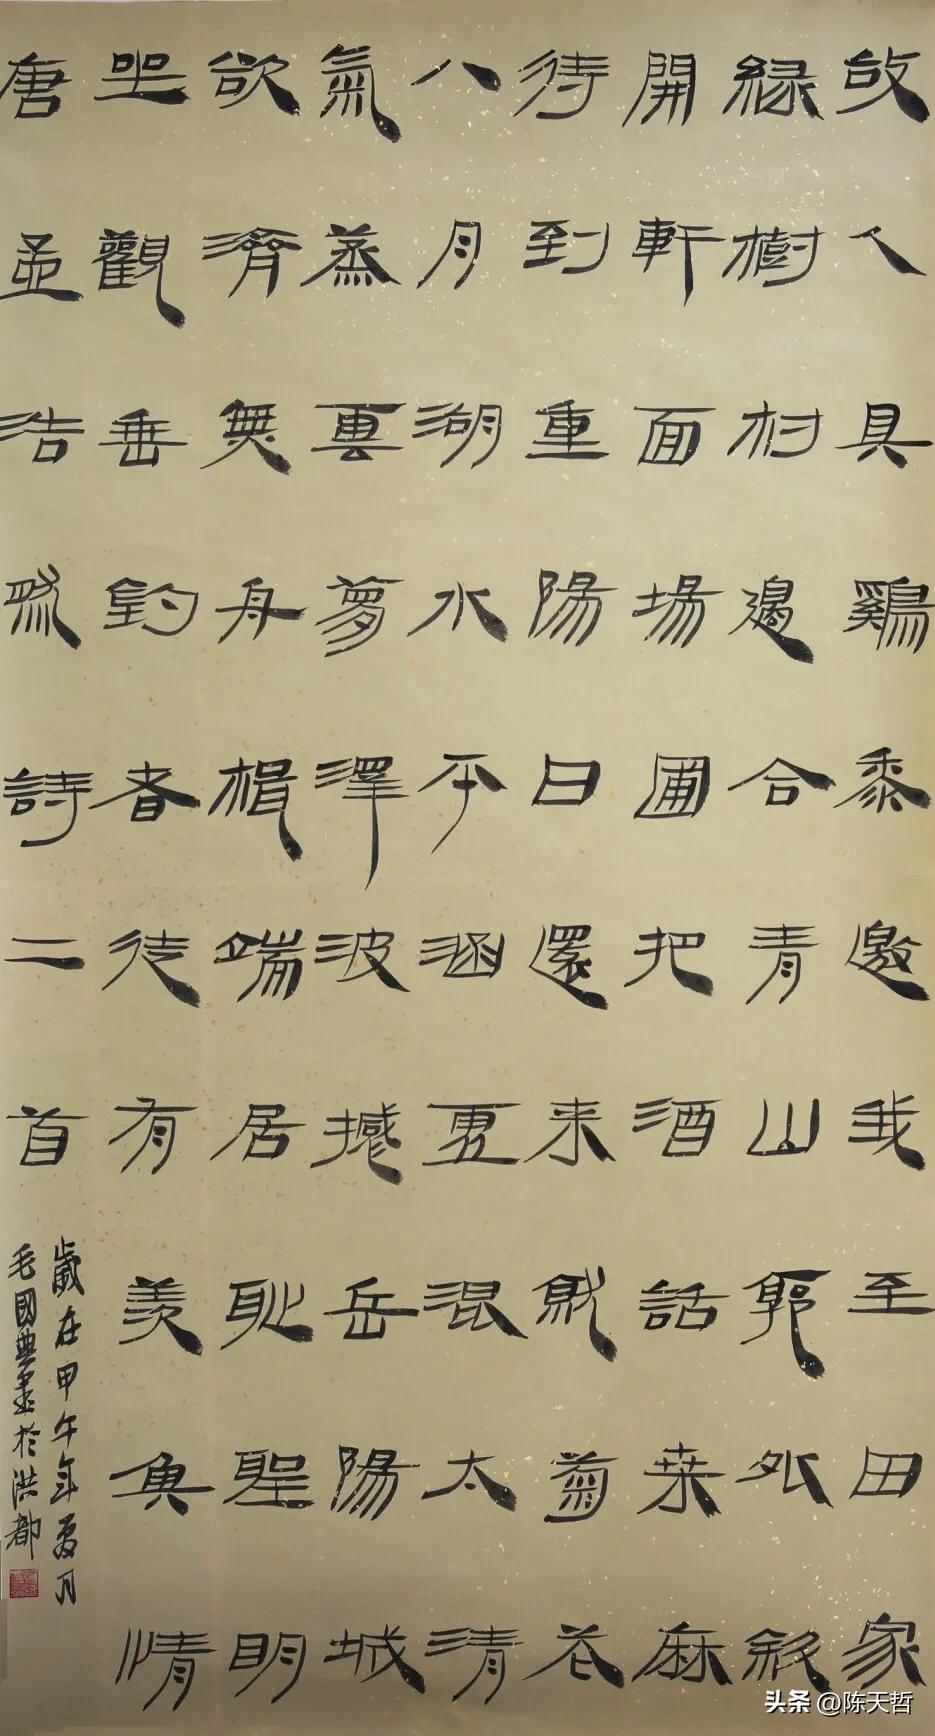 故人具鷄黍邀我至田家
緑樹村邊合青山郭外斜
開軒面場圃把酒話桑麻
待到重陽日還来就菊花
八月湖水平涵虚混太清
氣蒸雲夢澤波撼岳陽城
欲濟無舟楫端居耻聖明
坐觀垂釣者徒有羨魚情
唐孟浩然詩二首
歲在甲午年夏月
毛國典書於洪都
头条 @陈天哲